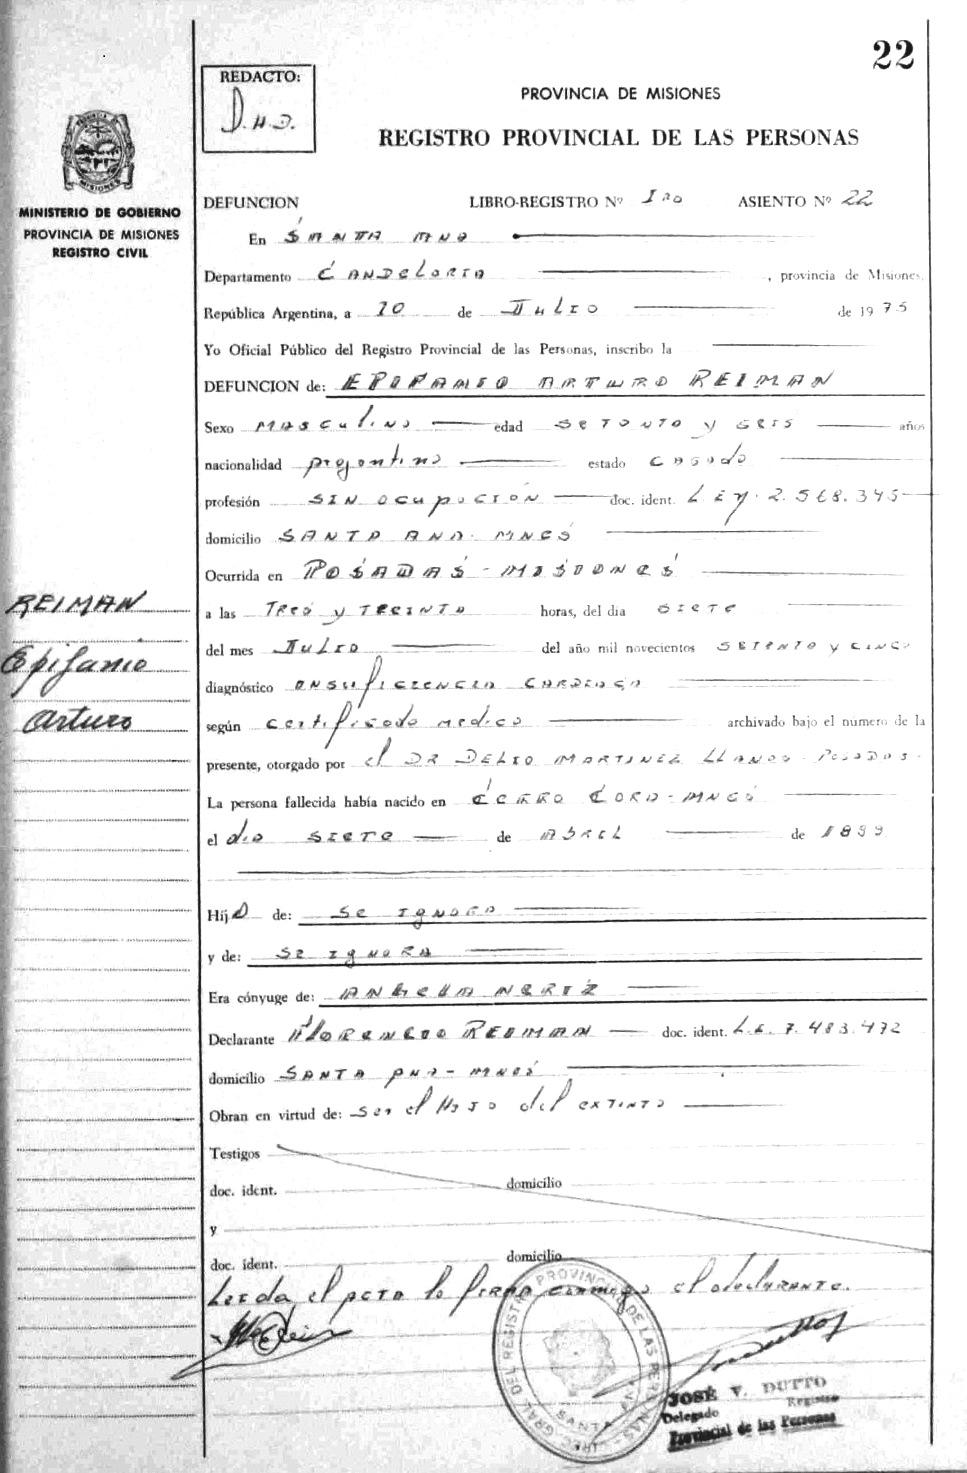 22
REDACTO:
D.H.D.
PROVINCIA DE MISIONES
REGISTRO PROVINCIAL DE LAS PERSONAS
MINISTERIO DE GOBIERNO
PROVINCIA DE MISIONES
REGISTRO CIVIL
DEFUNCION LIBRO-REGISTRO Nº 1ro ASIENTO Nº 22
En SANTA ANA
Departamento CANDELARIA, provincia de Misiones,
República Argentina, a 10 de JULIO de 1975
Yo Oficial Público del Registro Provincial de las Personas, inscribo la
DEFUNCION de: EPIFANIO ARTURO REIMAN
Sexo masculino edad setenta y seis años
nacionalidad argentina estado casado
profesión SIN ocupación doc. ident. L.E.Nº 2.568.345
domicilio SANTA ANA - MNES
Ocurrida en POSADAS - MISIONES
a las Tres y Treinta horas, del dia siete
del mes JULIO del año mil novecientos setenta y cinco
diagnóstico insuficiencia cardiaca
según certificado medico archivado bajo el número de la
presente, otorgado por el DR DELIO MARTINEZ LLANOS - Posadas -
La persona fallecida había nacido en CERRO CORA - MNES
el dia siete de ABRIL de 1899
Hijo de: se ignora
y de: se ignora
Era cónyuge de: ANGELA NERIZ
Declarante FLORENCIO REIMAN doc. ident. L.E. 7.483.472
domicilio SANTA ANA - MNES
Obran en virtud de: ser el Hijo del extinto
Testigos
doc. ident. domicilio
y
doc. ident. domicilio
Leida el acta la firma conmigo el declarante.
REIMAN
Epifanio
Arturo
REGISTRO PROVINCIAL DE LAS PERSONAS
SANTA
JOSÉ V. DUTTO
Delegado Registro
Provincial de las Personas